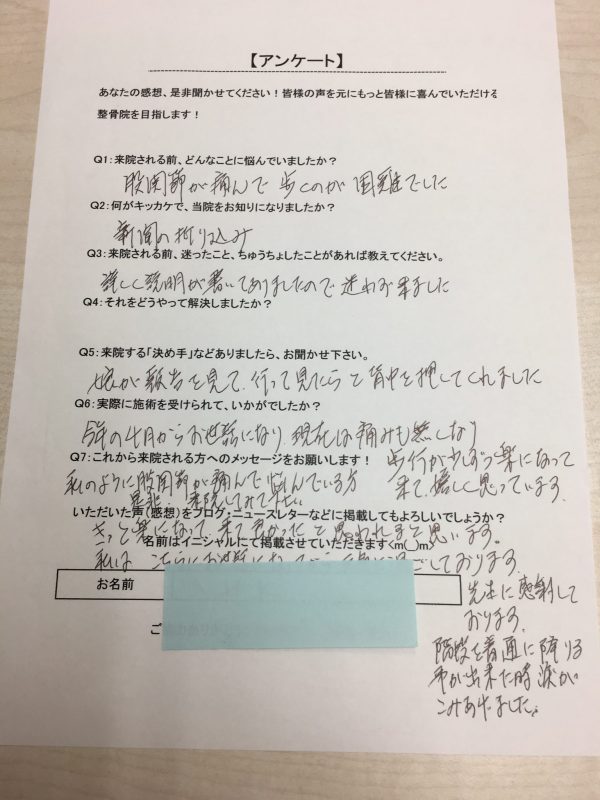 【アンケート】
あなたの感想、是非聞かせてください！皆様の声を元にもっと皆様に喜んでいただける
整骨院を目指します！
Q1：来院される前、どんなことに悩んでいましたか？
股関節が痛んで歩くのが困難でした
Q2：何がキッカケで、当院をお知りになりましたか？
新聞の折り込み
Q3：来院される前、迷ったこと、ちゅうちょしたことがあれば教えてください。
詳しく説明が書いてありましたので迷わず来ました
Q4：それをどうやって解決しましたか？
Q5：来院する「決め手」などありましたら、お聞かせ下さい。
娘が報告を見て、行って見たらと背中を押してくれました
Q6：実際に施術を受けられて、いかがでしたか？
今年の4月からお世話になり、現在は痛みも無しなり
歩行が少しずつ楽になって
来て、嬉しく思っています。
Q7：これから来院される方へのメッセージをお願いします！
私のように股関節が痛んで悩んでいる方
是非、来院してみて下さい
いただいた声（感想）をブログ・ニュースレターなどに掲載してもよろしいでしょうか？
きっと楽になって来て良かったと思われますと思います。
名前はイニシャルにて掲載させていただきます<m(_)m>
私は こちらにお世話になって
しております。
お名前
先生に感謝して
おります。
階段を普通に降りる
事が出来た時涙が
こみあげました。
ご